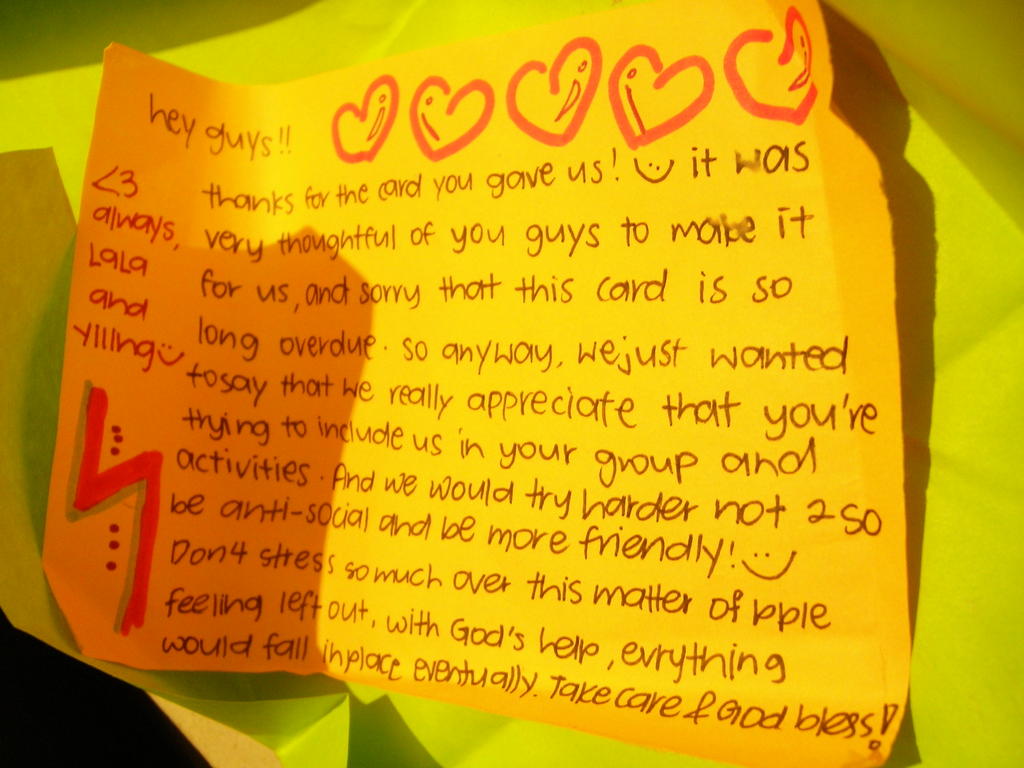 hey guys!!
thanks for the card you gave us! :) it was
very thoughtful of you guys to make it
for us, and sorry that this card is so
long overdue. so anyway, we just wanted
to say that we really appreciate that you're
trying to include us in your group and
activities. And we would try harder not 2 so
be anti-social and be more friendly! :)
Don4 stress so much over this matter of pple
feeling left out, with God's help, evrything
would fall in place eventually. Take care & God bless!
<3
always,
LaLa
and
yiling :)